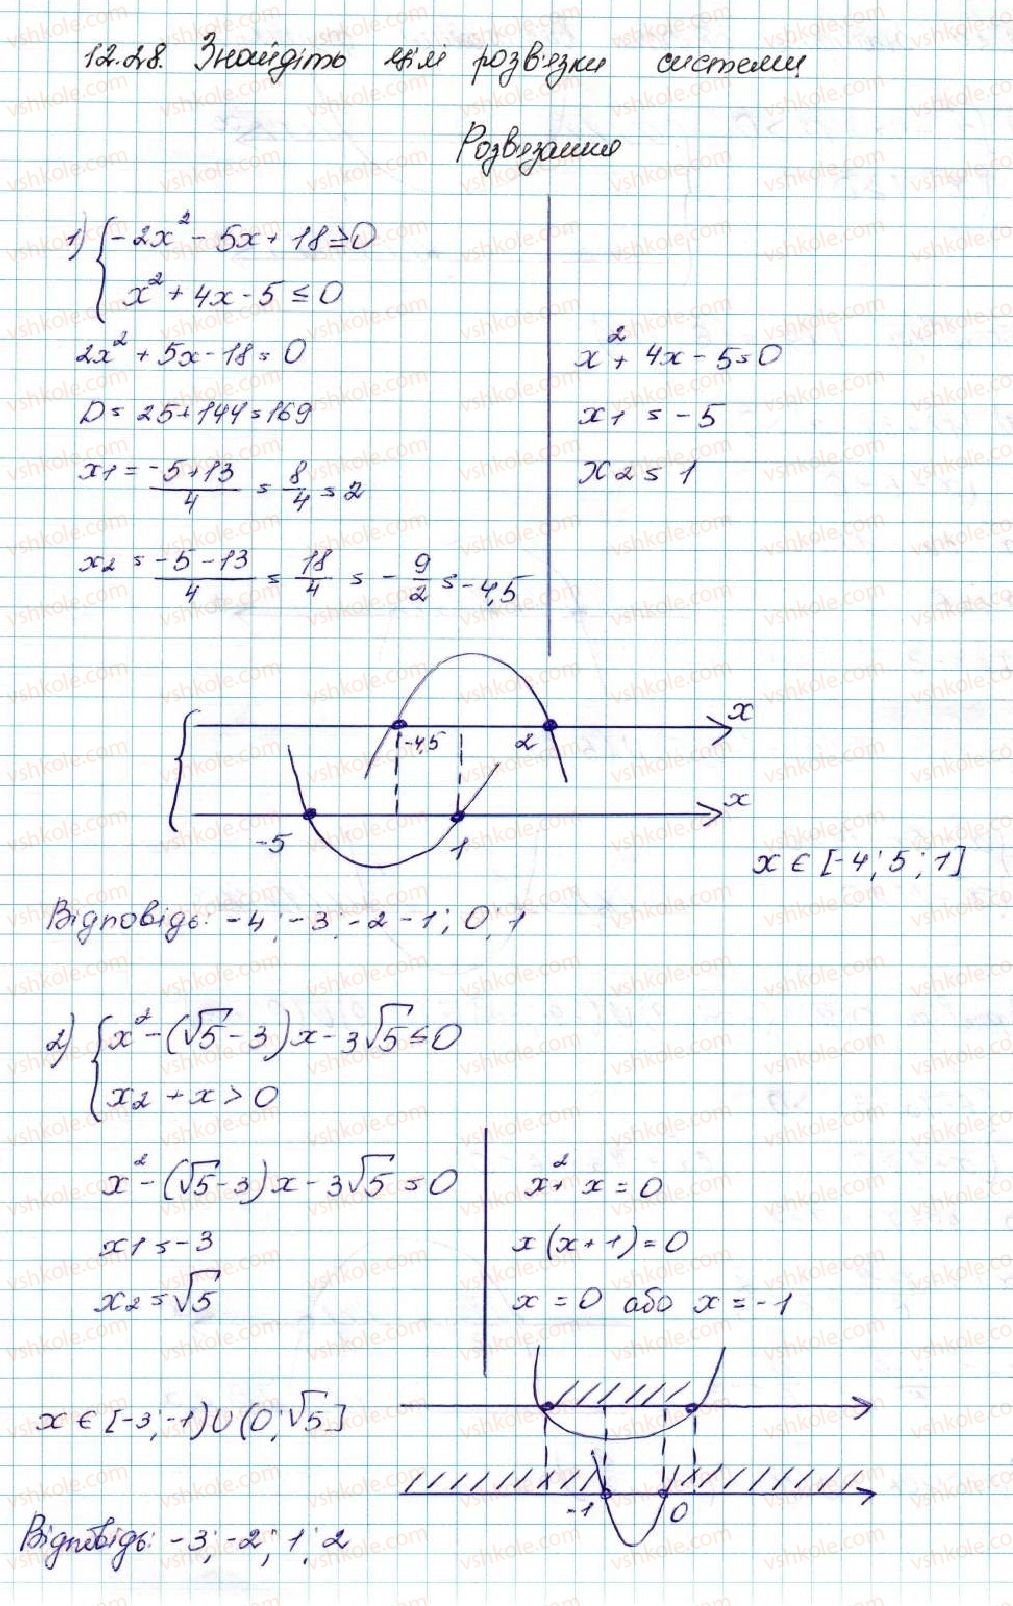 12.28. Знайдіть цілі розв'язки системи
Розв'язання
1) { -2x² - 5x + 18 ≥ 0
x² + 4x - 5 ≤ 0
2x² + 5x - 18 = 0
D = 25 + 144 = 169
x1 = (-5+13)/4 = 8/4 = 2
x2 = (-5-13)/4 = 18/4 = -9/2 = -4,5
x² + 4x - 5 = 0
x1 = -5
x2 = 1
-4,5 2 x
-5 1 x
x ∈ [-4; 5; 1]
Відповідь: -4; -3; -2 -1; 0; 1
2) { x² - (√5 - 3)x - 3√5 ≤ 0
x2 + x > 0
x² - (√5 - 3)x - 3√5 = 0
x1 = -3
x2 = √5
x² + x = 0
x(x+1) = 0
x = 0 або x = -1
x ∈ [-3; -1) ∪ (0; √5]
-1 0
Відповідь: -3; -2; 1; 2